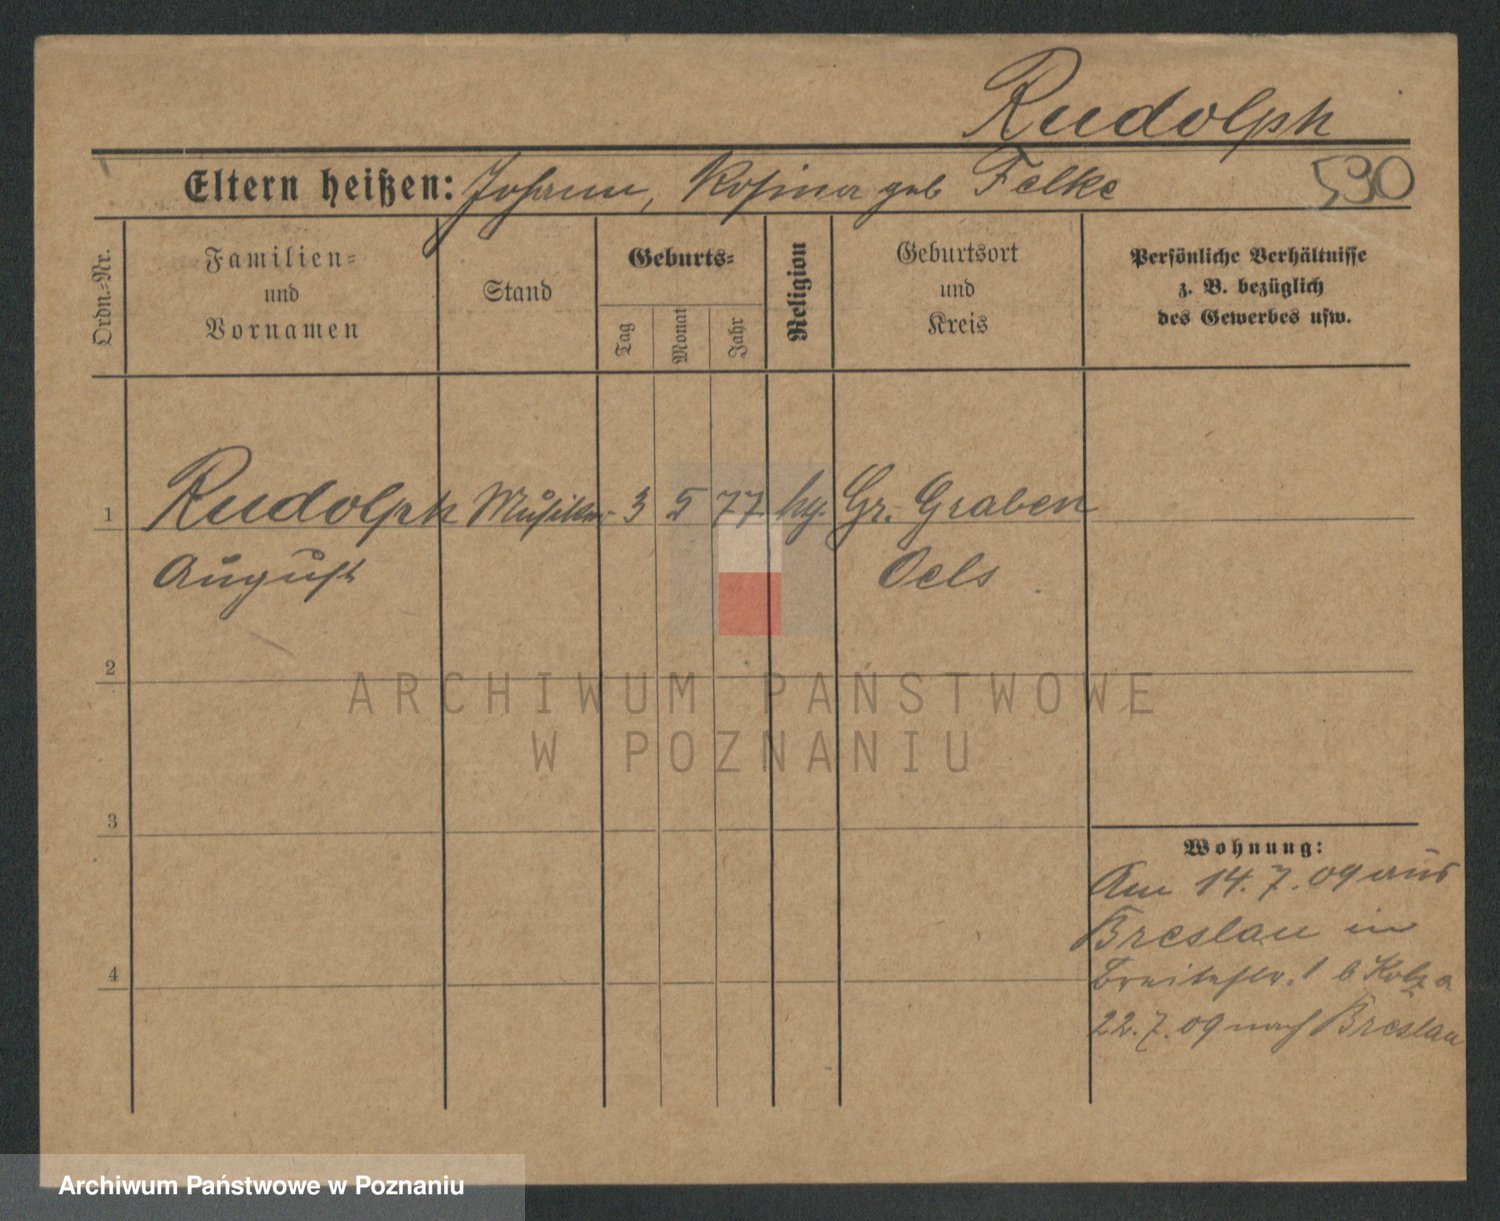 Rudolph
Eltern heißen: Johann, Rosina geb Felke
530
Ordn.-Nr.
Familien-
und
Vornamen
Stand
Geburts-
Tag
Monat
Jahr
Religion
Geburtsort
und
Kreis
Persönliche Verhältnisse
z. B. bezüglich
des Gewerbes usw.
1 Rudolph Musiker 3 5 77 Gr. Graben
August Oels
2
3
4
Wohnung:
Am 14.7.09 aus
Breslau in
Breitestr. 1 b
22.7.09 nach Breslau
ARCHIWUM PAŃSTWOWE
W POZNANIU
Archiwum Państwowe w Poznaniu